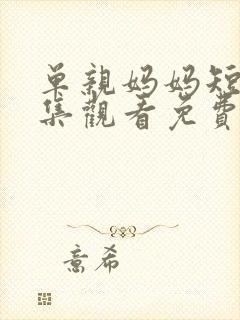 单親妈妈短
集觀看免費
意希